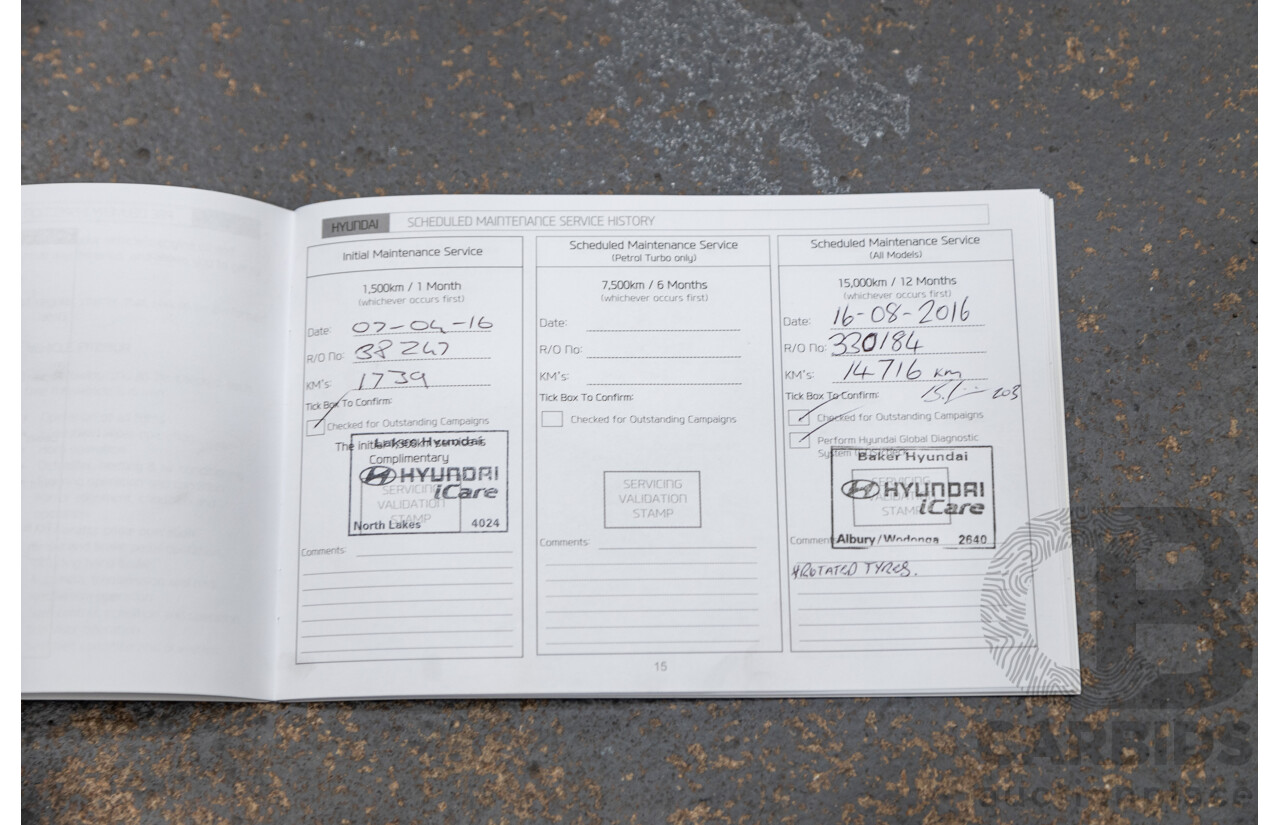 HYUNDAI SCHEDULED MAINTENANCE SERVICE HISTORY
Initial Maintenance Service
1,500km / 1 Month
(whichever occurs first)
Date: 07-04-16
R/O No: 38247
KM's: 1739
Tick Box To Confirm:
Checked for Outstanding Campaigns
The initial 1,500km service is
Lakes Hyundai
Complimentary
HYUNDAI
iCare
SERVICING
VALIDATION
STAMP
North Lakes 4024
Comments:
Scheduled Maintenance Service
(Petrol Turbo only)
7,500km / 6 Months
(whichever occurs first)
Date:
R/O No:
KM's:
Tick Box To Confirm:
Checked for Outstanding Campaigns
SERVICING
VALIDATION
STAMP
Comments:
Scheduled Maintenance Service
(All Models)
15,000km / 12 Months
(whichever occurs first)
Date: 16-08-2016
R/O No: 330184
KM's: 14716 km
Tick Box To Confirm:
Checked for Outstanding Campaigns
Perform Hyundai Global Diagnostic
System
Baker Hyundai
SERVICING
HYUNDAI
iCare
STAMP
Comments
Albury/Wodonga 2640
ROTATED TYRES.
15
CARBIDS